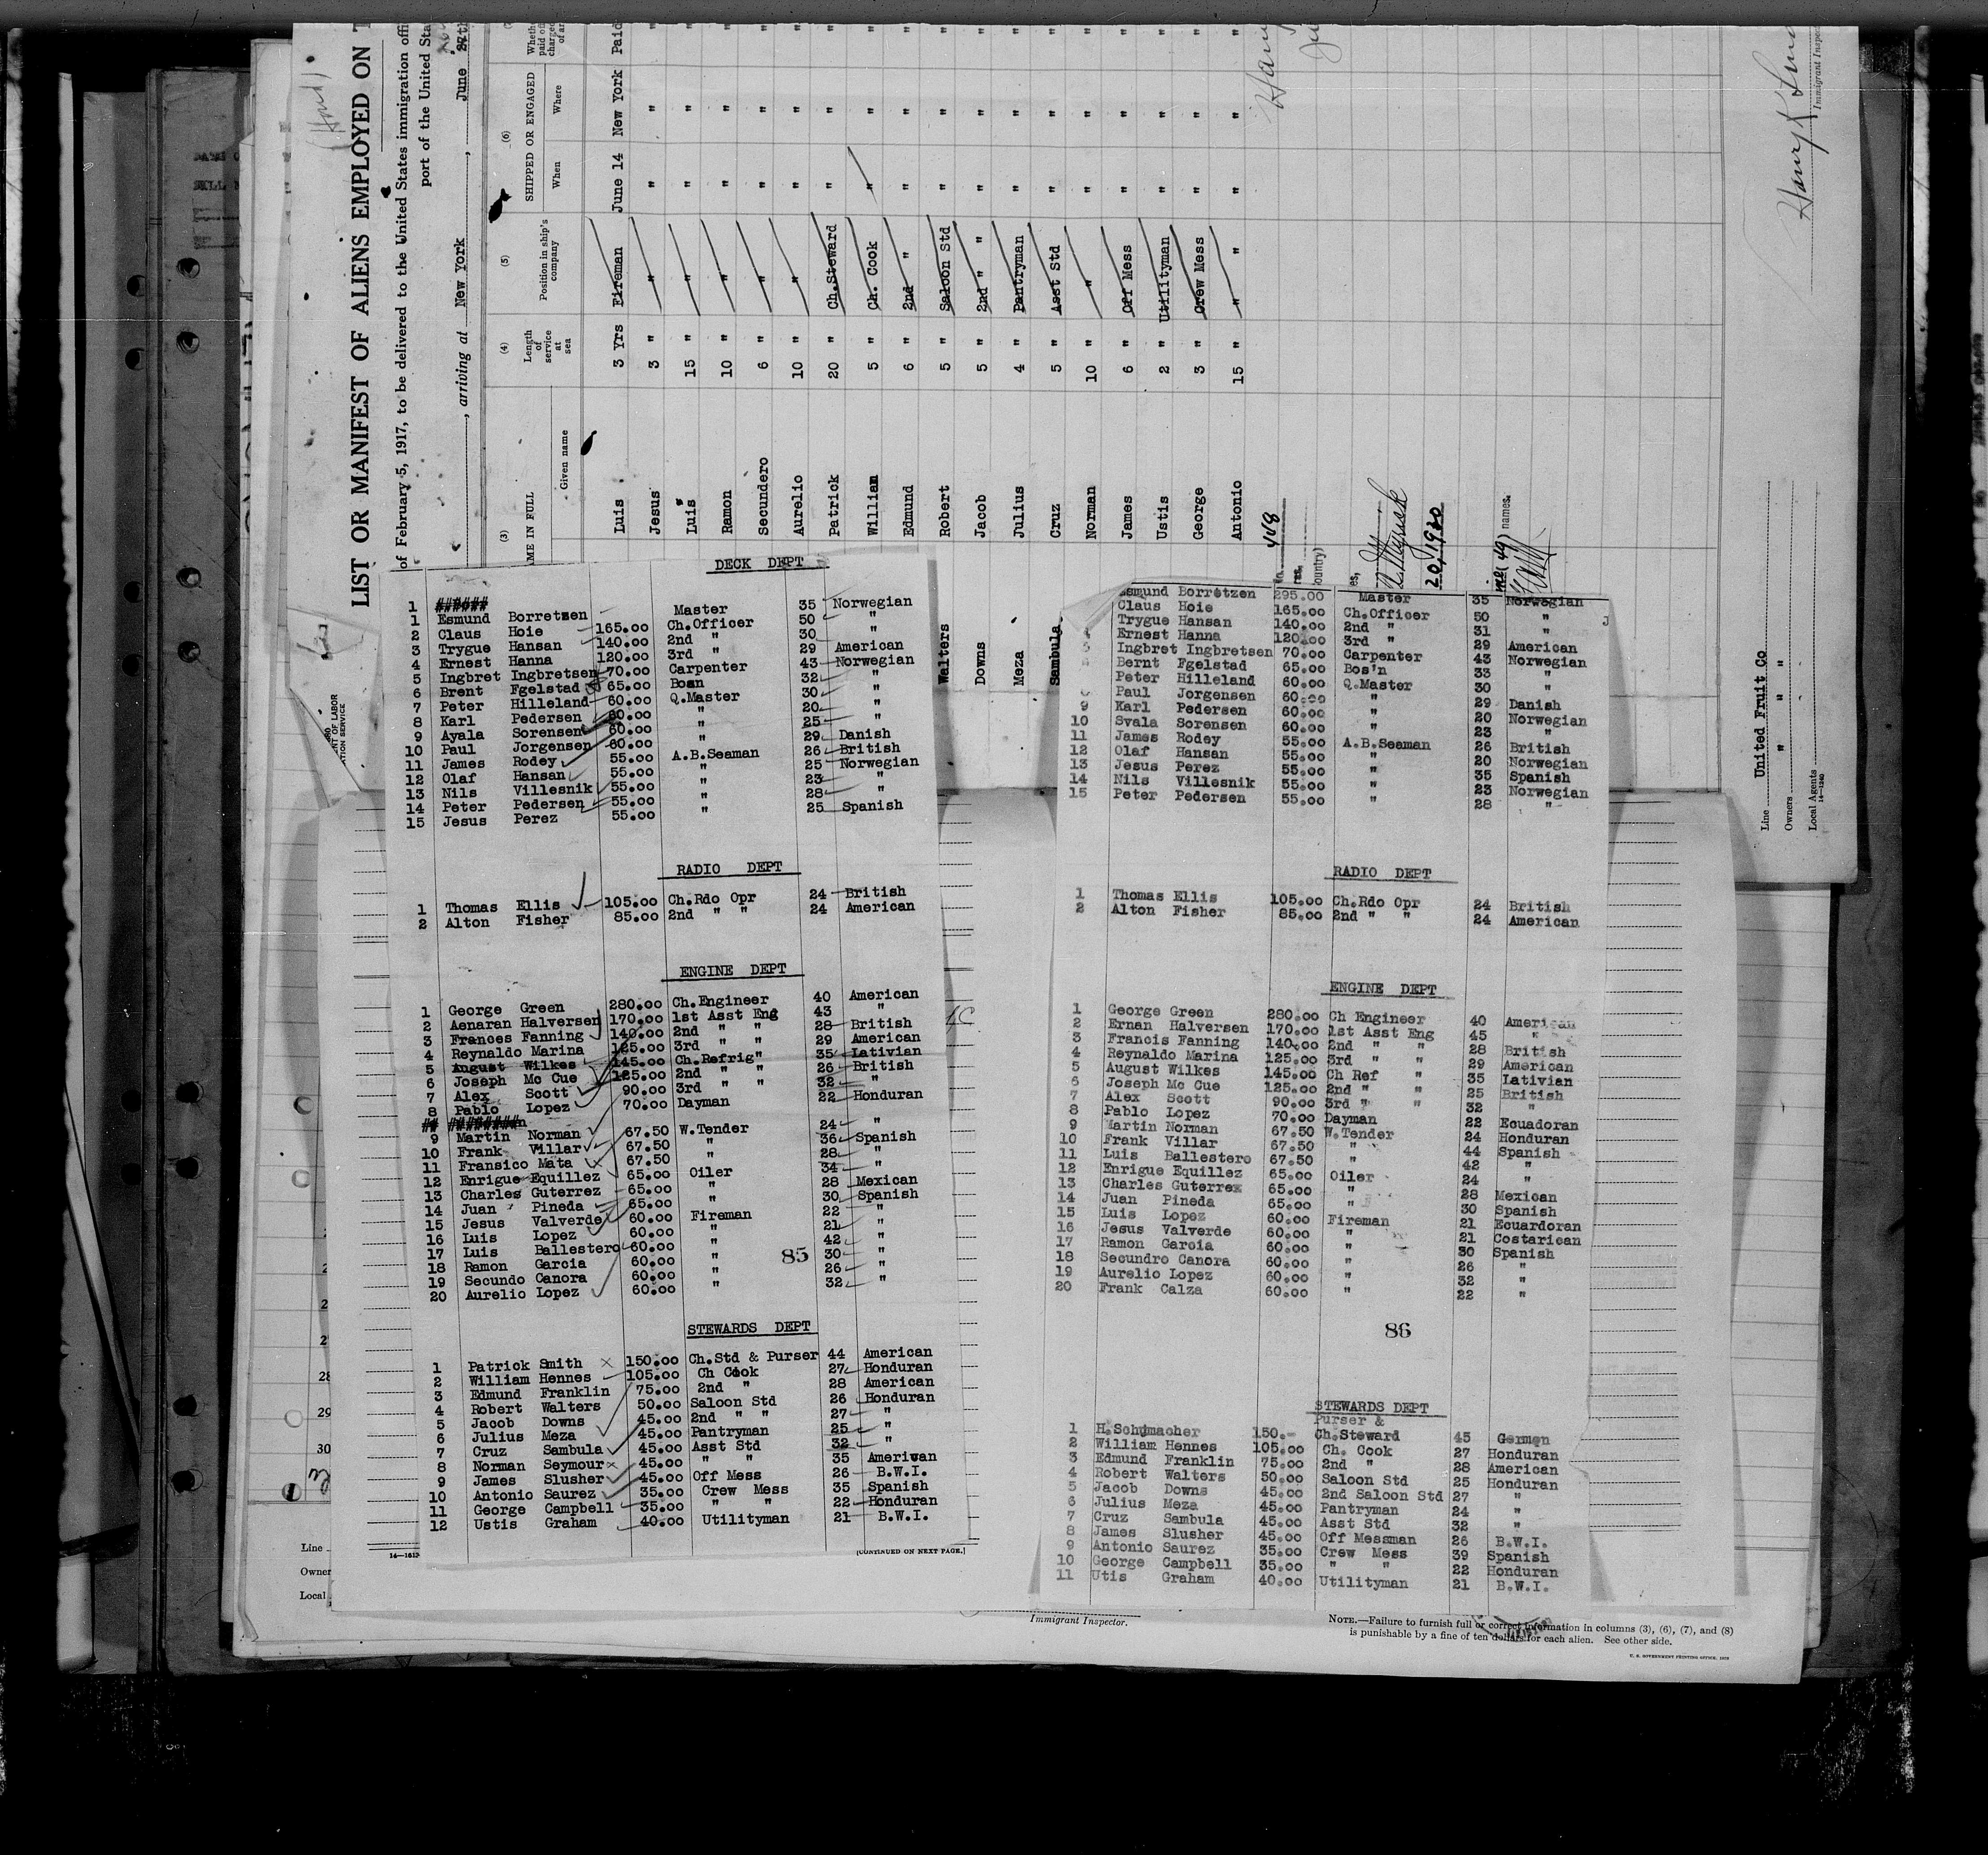 LIST OR MANIFEST OF ALIENS EMPLOYED ON T
of February 5, 1917, to be delivered to the United States immigration offi
port of the United Sta
, arriving at New York , June 27th
(3) (4) (5) (6)
AME IN FULL Length of service at sea Position in ship's company SHIPPED OR ENGAGED
Given name When Where
Luis 3 Yrs Fireman June 14 New York Paid
Jesus 3 " " " " "
Luis 15 " " " " "
Ramon 10 " " " " "
Secundero 6 " " " " "
Aurelio 10 " " " " "
Patrick 20 " Ch.Steward " " "
William 5 " Ch. Cook " " "
Edmund 6 " 2nd " " " "
Walters Robert 5 " Saloon Std " " "
Downs Jacob 5 " 2nd " " " " "
Meza Julius 4 " Pantryman " " "
Sambula Cruz 5 " Asst Std " " "
Norman 10 " " " " "
James 6 " Off Mess " " "
Ustis 2 " Utilityman " " "
George 3 " Crew Mess " " "
Antonio 15 " " " " " "
Line United Fruit Co
Owners " " "
Local Agents " " "
14-1240
Immigrant Inspe
DECK DEPT
1 ######
1 Esmund Borretzen Master 35 Norwegian
2 Claus Hoie 165.00 Ch.Officer 50 "
3 Trygue Hansan 140.00 2nd " 30 "
4 Ernest Hanna 120.00 3rd " 29 American
5 Ingbret Ingbretsen 70.00 Carpenter 43 Norwegian
6 Brent Fgelstad 65.00 Bosn 32 "
7 Peter Hilleland 60.00 Q.Master 30 "
8 Karl Pedersen 60.00 " 20 "
9 Ayala Sorensen 60.00 " 25 "
10 Paul Jorgensen 60.00 " 29 Danish
11 James Rodey 55.00 A.B.Seaman 26 British
12 Olaf Hansan 55.00 " 25 Norwegian
13 Nils Villesnik 55.00 " 23 "
14 Peter Pedersen 55.00 " 28 "
15 Jesus Perez 55.00 " 25 Spanish
RADIO DEPT
1 Thomas Ellis 105.00 Ch.Rdo Opr 24 British
2 Alton Fisher 85.00 2nd " " 24 American
ENGINE DEPT
1 George Green 280.00 Ch.Engineer 40 American
2 Aenaran Halversen 170.00 1st Asst Eng 43 "
3 Frances Fanning 140.00 2nd " " 28 British
4 Reynaldo Marina 125.00 3rd " " 29 American
5 August Wilkes 145.00 Ch.Refrig" 35 Lativian
6 Joseph Mc Cue 125.00 2nd " " 26 British
7 Alex Scott 90.00 3rd " " 32 "
8 Pablo Lopez 70.00 Dayman 22 Honduran
## #######n
9 Martin Norman 67.50 W.Tender 24 "
10 Frank Villar 67.50 " 36 Spanish
11 Fransico Mata 67.50 " 28 "
12 Enrigue Equillez 65.00 Oiler 34 "
13 Charles Guterrez 65.00 " 28 Mexican
14 Juan Pineda 65.00 " 30 Spanish
15 Jesus Valverde 60.00 Fireman 22 "
16 Luis Lopez 60.00 " 21 "
17 Luis Ballestero 60.00 " 42 "
18 Ramon Garcia 60.00 " 30 "
19 Secundo Canora 60.00 " 26 "
20 Aurelio Lopez 60.00 " 32 "
85
STEWARDS DEPT
1 Patrick Smith 150.00 Ch.Std & Purser 44 American
2 William Hennes 105.00 Ch Cook 27 Honduran
3 Edmund Franklin 75.00 2nd " 28 American
4 Robert Walters 50.00 Saloon Std 26 Honduran
5 Jacob Downs 45.00 2nd " " 27 "
6 Julius Meza 45.00 Pantryman 25 "
7 Cruz Sambula 45.00 Asst Std 32 "
8 Norman Seymour 45.00 " " 35 Ameriwan
9 James Slusher 45.00 Off Mess 26 B.W.I.
10 Antonio Saurez 35.00 Crew Mess 35 Spanish
11 George Campbell 35.00 " " 22 Honduran
12 Ustis Graham 40.00 Utilityman 21 B.W.I.
[CONTINUED ON NEXT PAGE.]
Esmund Borretzen 295.00 Master 35 Norwegian
Claus Hoie 165.00 Ch.Officer 50 "
Trygue Hansan 140.00 2nd " 31 "
Ernest Hanna 120.00 3rd " 29 American
Ingbret Ingbretsen 70.00 Carpenter 43 Norwegian
Bernt Fgelstad 65.00 Bos'n 33 "
Peter Hilleland 60.00 Q.Master 30 "
Paul Jorgensen 60.00 " 29 Danish
9 Karl Pedersen 60.00 " 20 Norwegian
10 Svala Sorensen 60.00 " 23 "
11 James Rodey 55.00 A.B.Seaman 26 British
12 Olaf Hansan 55.00 " 20 Norwegian
13 Jesus Perez 55.00 " 35 Spanish
14 Nils Villesnik 55.00 " 23 Norwegian
15 Peter Pedersen 55.00 " 28 "
RADIO DEPT
1 Thomas Ellis 105.00 Ch.Rdo Opr 24 British
2 Alton Fisher 85.00 2nd " " 24 American
ENGINE DEPT
1 George Green 280.00 Ch Engineer 40 American
2 Ernan Halversen 170.00 1st Asst Eng 45 "
3 Francis Fanning 140.00 2nd " " 28 British
4 Reynaldo Marina 125.00 3rd " " 29 American
5 August Wilkes 145.00 Ch Ref " 35 Lativian
6 Joseph Mc Cue 125.00 2nd " " 25 British
7 Alex Scott 90.00 3rd " " 32 "
8 Pablo Lopez 70.00 Dayman 22 Ecuadoran
9 Martin Norman 67.50 W.Tender 24 Honduran
10 Frank Villar 67.50 " 44 Spanish
11 Luis Ballestero 67.50 " 42 "
12 Enrigue Equillez 65.00 Oiler 24 "
13 Charles Guterrez 65.00 " 28 Mexican
14 Juan Pineda 65.00 " 30 Spanish
15 Luis Lopez 60.00 Fireman 21 Ecuardoran
16 Jesus Valverde 60.00 " 21 Costarican
17 Ramon Garcia 60.00 " 30 Spanish
18 Secundro Canora 60.00 " 26 "
19 Aurelio Lopez 60.00 " 32 "
20 Frank Calza 60.00 " 22 "
86
STEWARDS DEPT
Purser &
1 H.Schumacher 150.- Ch.Steward 45 German
2 William Hennes 105.00 Ch. Cook 27 Honduran
3 Edmund Franklin 75.00 2nd " 28 American
4 Robert Walters 50.00 Saloon Std 25 Honduran
5 Jacob Downs 45.00 2nd Saloon Std 27 "
6 Julius Meza 45.00 Pantryman 24 "
7 Cruz Sambula 45.00 Asst Std 32 "
8 James Slusher 45.00 Off Messman 26 B.W.I.
9 Antonio Saurez 35.00 Crew Mess 39 Spanish
10 George Campbell 35.00 " " 22 Honduran
11 Utis Graham 40.00 Utilityman 21 B.W.I.
28
29
30
Line
Owner
Local
Immigrant Inspector.
NOTE.—Failure to furnish full or correct information in columns (3), (6), (7), and (8)
is punishable by a fine of ten dollars for each alien. See other side.
U. S. GOVERNMENT PRINTING OFFICE